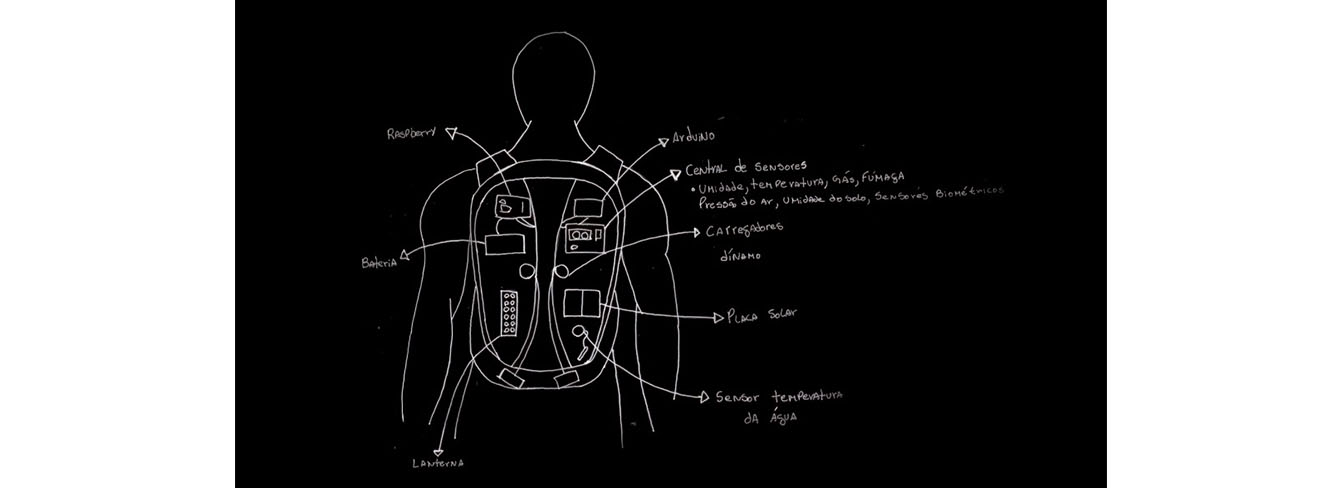 Raspberry
Arduino
Central de Sensores
• Umidade, temperatura, Gás, Fúmaça
Pressão do Ar, Umidade do solo, Sensores Biométricos
Carregadores
dínamo
Bateria
Placa Solar
Sensor temperatura
da água
Lanterna